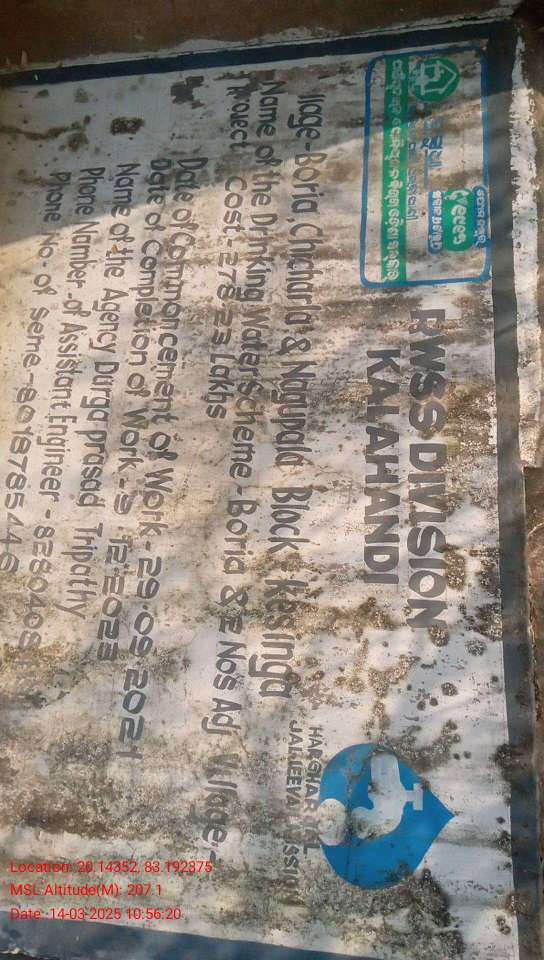 RWSS DIVISION
KALAHANDI
HAR GHAR JAL
JAL JEEVAN MISSION
llage-Boria, Chacharla & Nagupala Block - Kesinga
Name of the Drinking Water Scheme - Boria & 2 No's Adj Village
Project Cost - 278.23 Lakhs
Date of Commoncement of Work - 29.09.2021
Date of Completion of Work - 9.12.2023
Name of the Agency Durga prasad Tripathy
Phone Namber of Assistant Engineer -
Phone No. of Seme -
Location: 20.14352, 83.192375
MSL Altitude(M): 207.1
Date: 14-03-2025 10:56:20